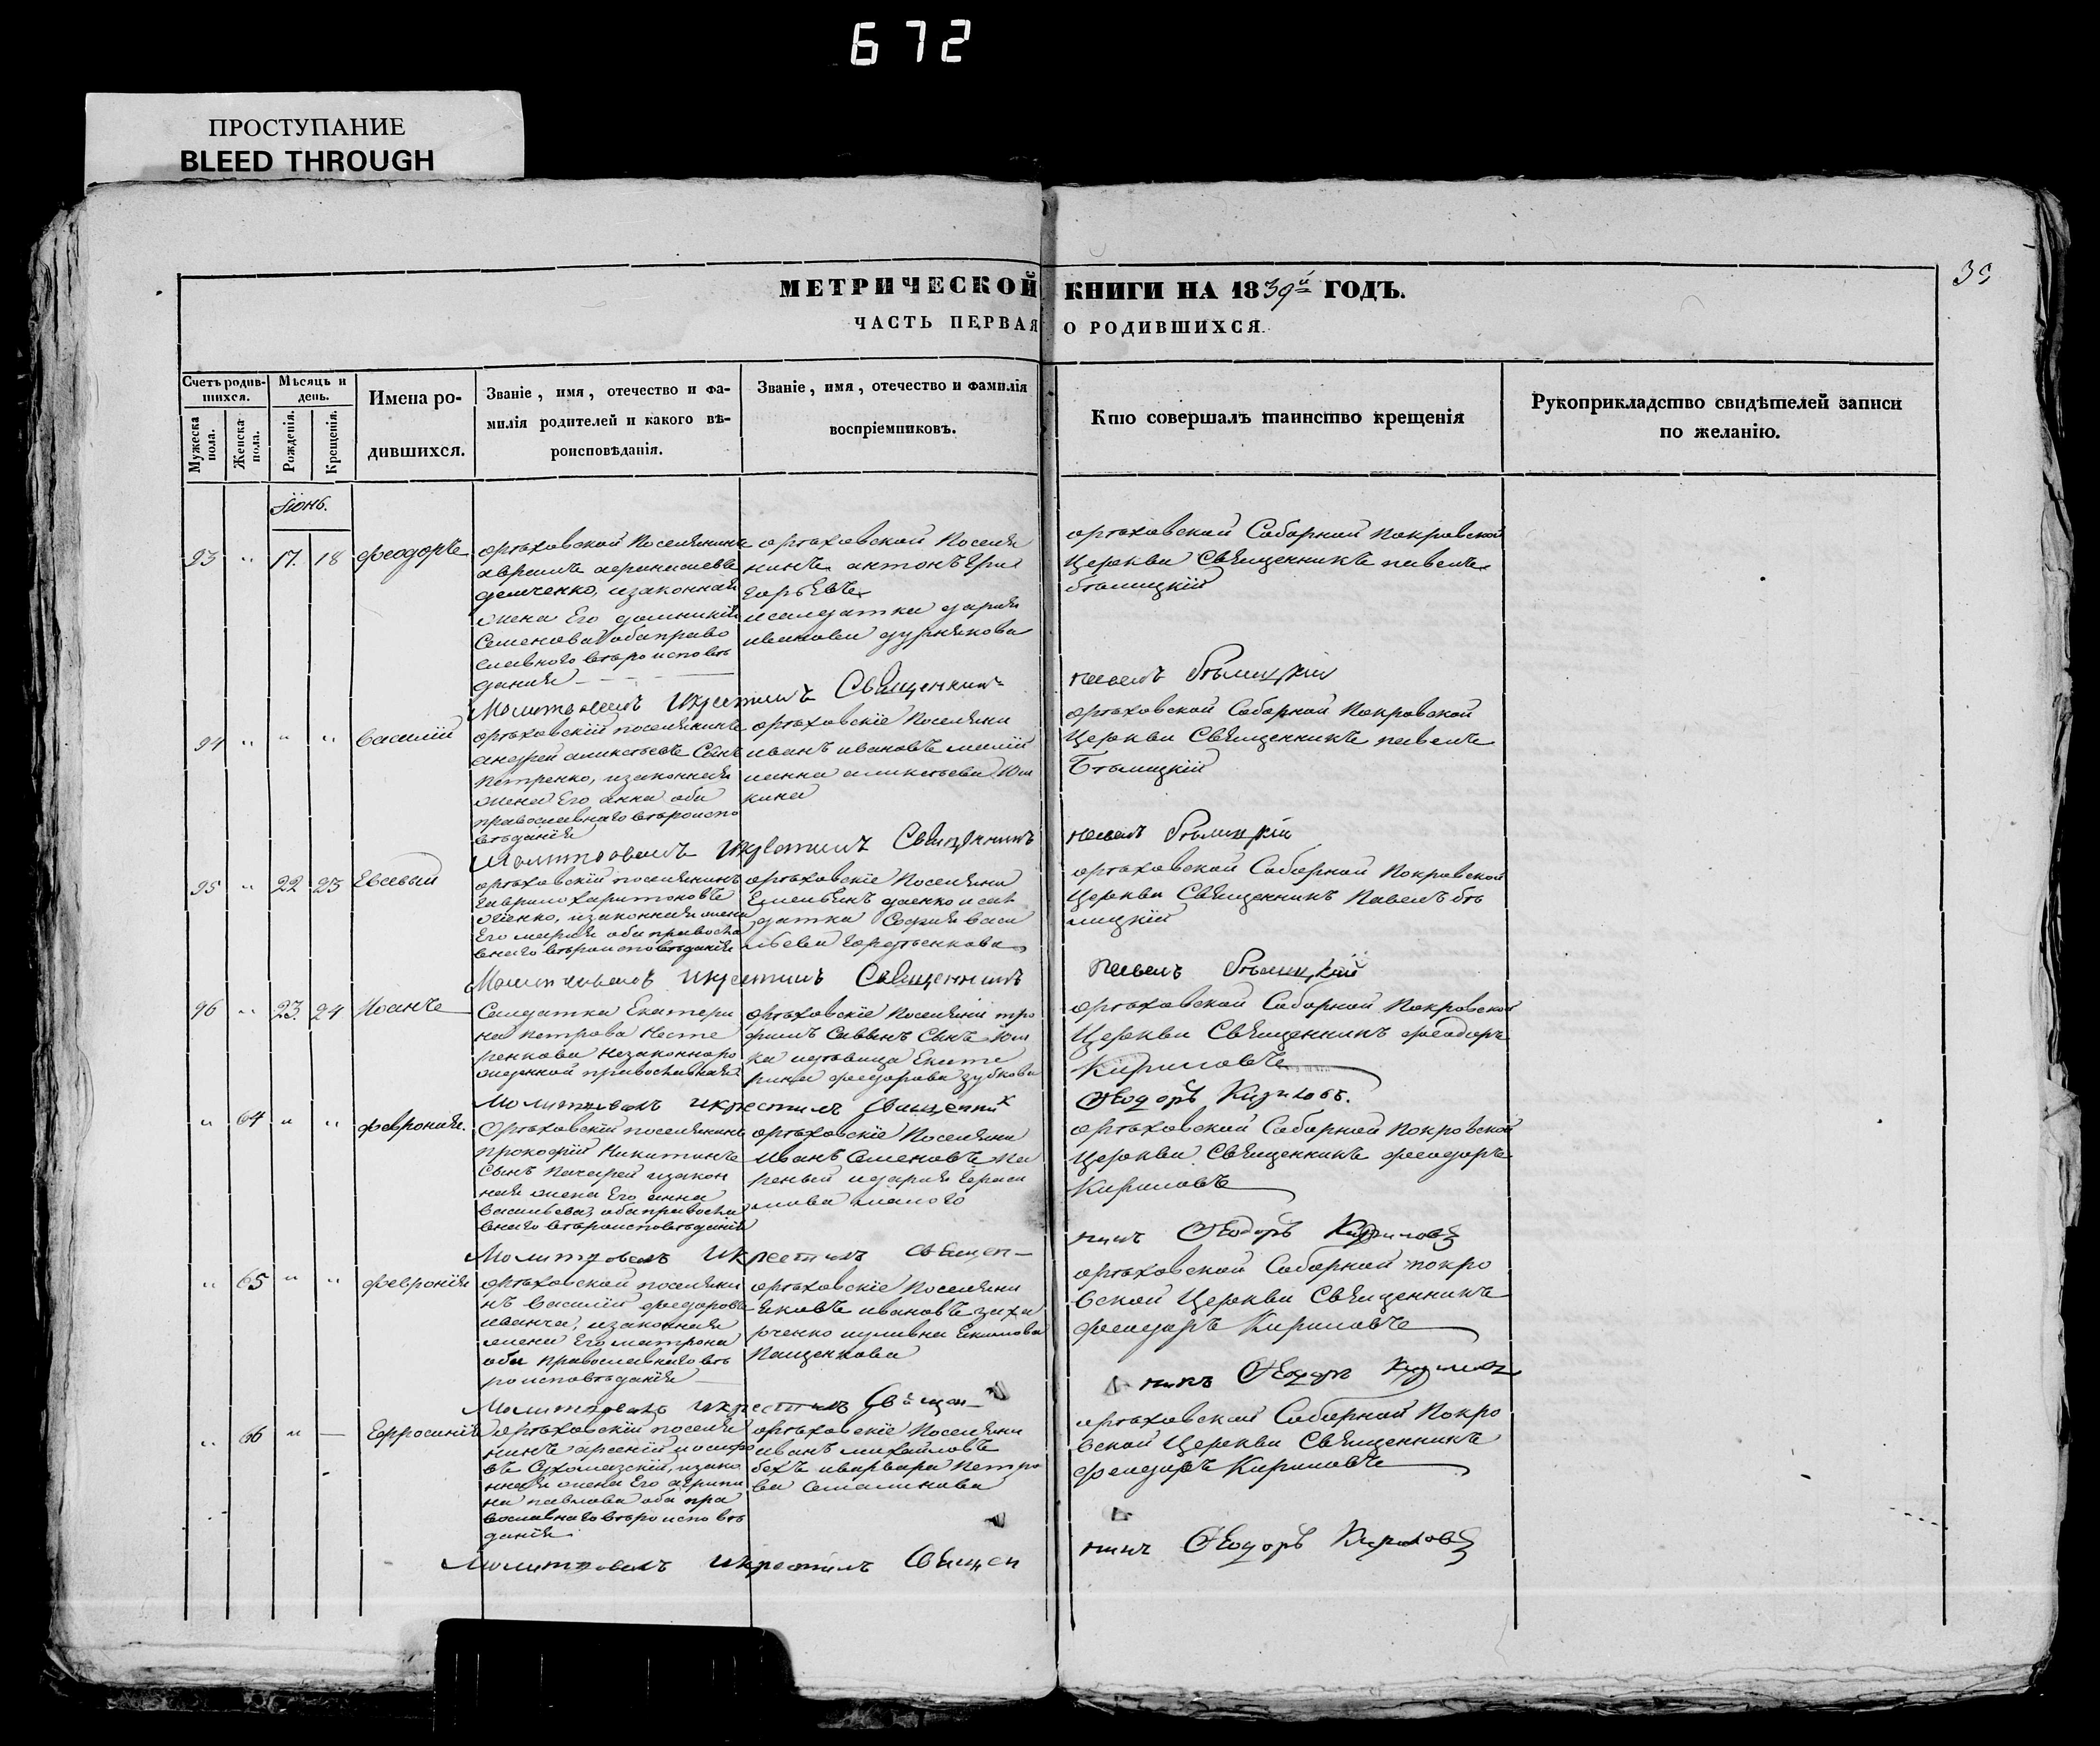 672
ПРОСТУПАНИЕ
BLEED THROUGH
35
МЕТРИЧЕСКОЙ КНИГИ НА 1839й ГОДЪ.
ЧАСТЬ ПЕРВАЯ О РОДИВШИХСЯ.
Счетъ родив-
шихся.
Мужеска
пола.
Женска
пола.
Мѣсяцъ и
день.
Рожденія.
Крещенія.
Имена ро-
дившихся.
Званіе, имя, отечество и фа-
милія родителей и какого вѣ-
роисповѣданія.
Званіе, имя, отечество и фамилія
воспріемниковъ.
Кто совершалъ таинство крещенія
Рукоприкладство свидѣтелей записи
по желанію.
Іюнь.
93 " 17. 18 Феодоръ
орѣховской Поселянинъ
демченко, изаконная
жена Его
Семенова оба право
славного вѣроисповѣ
данія
орѣховской Поселя
нинъ антонъ Григ
горьевъ
исалдатка дария
иванова
орѣховской Соборной Покровской
Церкви Священникъ павелъ
бѣлицкій
Молитвовалъ икрестилъ Священникъ
павелъ Бѣлицкій
94 " " " Василій
орѣховскій поселянинъ
андрей алексѣевъ Сынъ
Петренко, изаконная
жена Его анна оба
православнаго вѣроиспо
вѣданія
орѣховскіе Поселяни
иванъ ивановъ
ианна алексѣева Юш
кина
орѣховской Соборной Покровской
Церкви Священникъ павелъ
Бѣлицкій
Молитвовалъ икрестилъ Священникъ
павелъ Бѣлицкій
95 " 22 23 Евсевый
орѣховскій поселянинъ
гаврило харитоновъ
изаконная жена
Его мария оба правосла
внаго вѣроисповѣданія
орѣховскіе Поселяни
исал
датка София васи
льева
орѣховской Соборной Покровской
Церкви Священникъ Павелъ бѣ
лицкій
Молитвовалъ икрестилъ Священникъ
Павелъ Бѣлицкій
96 " 23. 24 Иоанъ
Салдатка Екатери
на Петрова Несте
ренкова незаконноро
жденной православная
орѣховскіе Поселяни тро
фимъ Саввинъ Сынъ Юш
ка ивдовица Екате
рина федорова зубкова
орѣховской Соборной Покровской
Церкви Священникъ феодоръ
Кириловъ
Молитвовалъ икрестилъ Священник
Ѳеодоръ Кириловъ.
" 64 " " феврония.
Орѣховскій поселянинъ
прокофій Никитинъ
Сынъ изакон
ная жена Его анна
Васильева, оба правосла
внаго вѣроисповѣданія
орѣховскіе Поселяни
Иванъ Семеновъ
идария Гераси
мова малого
орѣховской Соборной Покровской
Церкви Священникъ феодоръ
Кириловъ
Молитвовалъ икрестилъ Священ-
никъ Ѳеодоръ Кириловъ
" 65 " " феврония
орѣховской поселяни
нъ василій федоровъ
изаконная
жена Его матрона
оба православнаго вѣ
роисповѣданія
орѣховскіе Поселяни
Яковъ ивановъ заха
рченко иулияна Екимова
Пащенкова
орѣховской Соборной покро
вской Церкви Священникъ
феодоръ Кириловъ
Молитвовалъ икрестилъ Священ-
никъ Ѳеодоръ Кириловъ
" 66 " — Ефросиния
орѣховскій поселя
нинъ арсений иосифо
въ изако
нная жена Его агрипи
на павлова оба пра
вославнаго вѣроисповѣ
данія
орѣховскіе Поселяни
иванъ михайловъ
иварвара Петро
ва
орѣховской Соборной Покро
вской Церкви Священникъ
феодоръ Кириловъ
Молитвовалъ икрестилъ Священ
никъ Ѳеодоръ Кириловъ